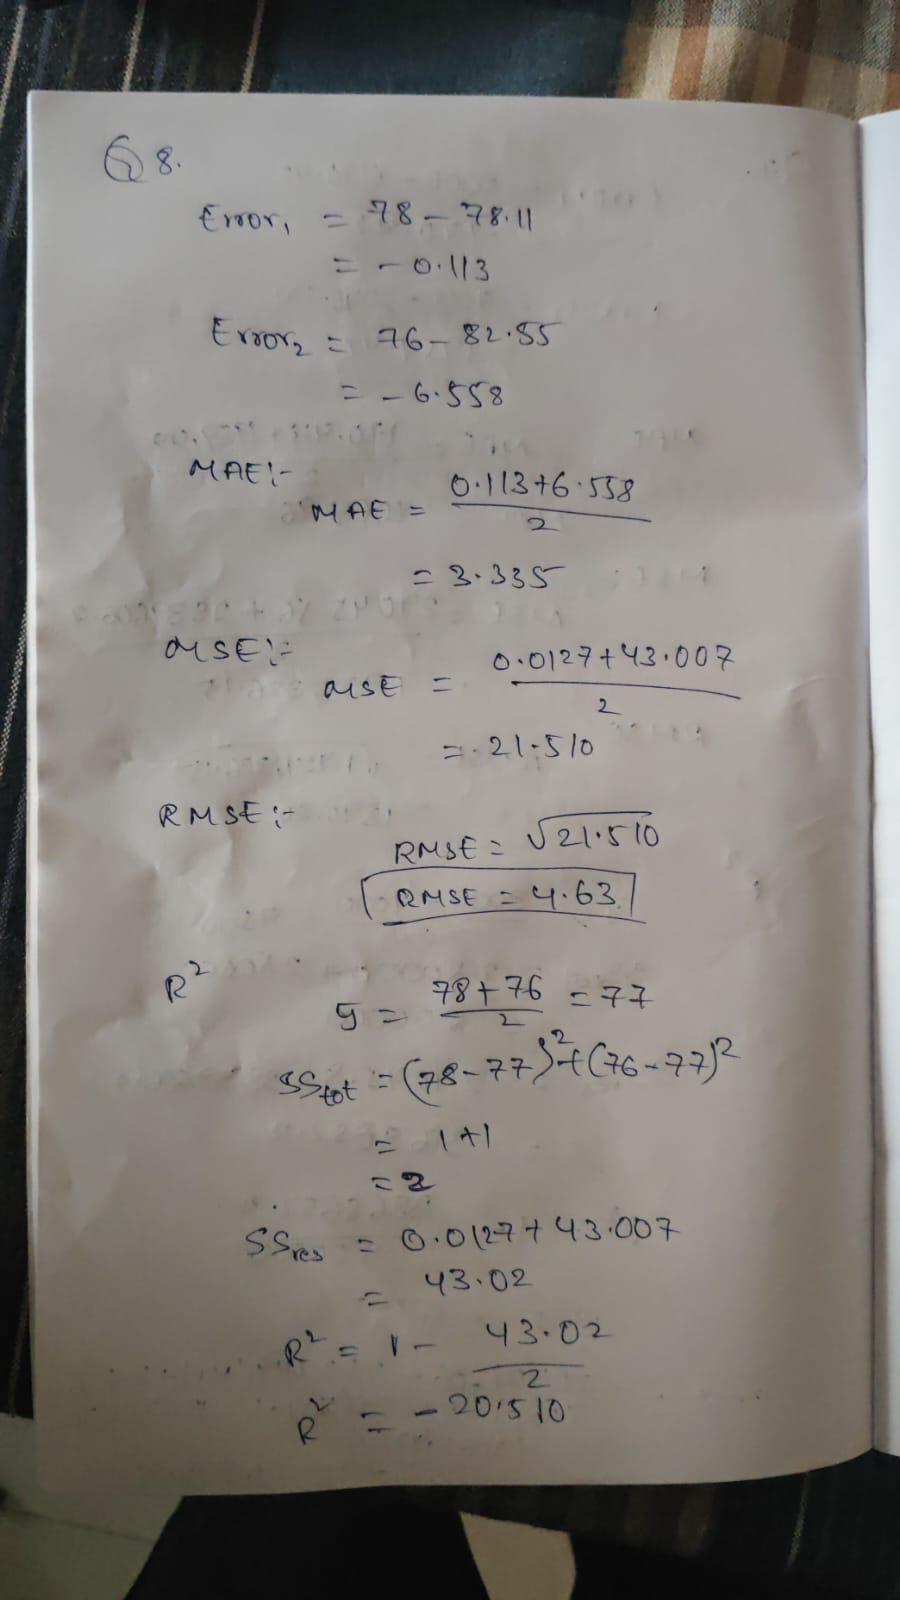 Q8.
Error₁ = 78 - 78.11
= -0.113
Error₂ = 76 - 82.55
= -6.558
MAE:-
MAE = (0.113+6.558)/2
= 3.335
MSE:-
MSE = (0.0127+43.007)/2
= 21.510
RMSE:-
RMSE = √21.510
RMSE = 4.63
R²
ȳ = (78+76)/2 = 77
SStot = (78-77)²+(76-77)²
= 1+1
= 2
SSres = 0.0127+43.007
= 43.02
R² = 1 - 43.02/2
R² = -20.510